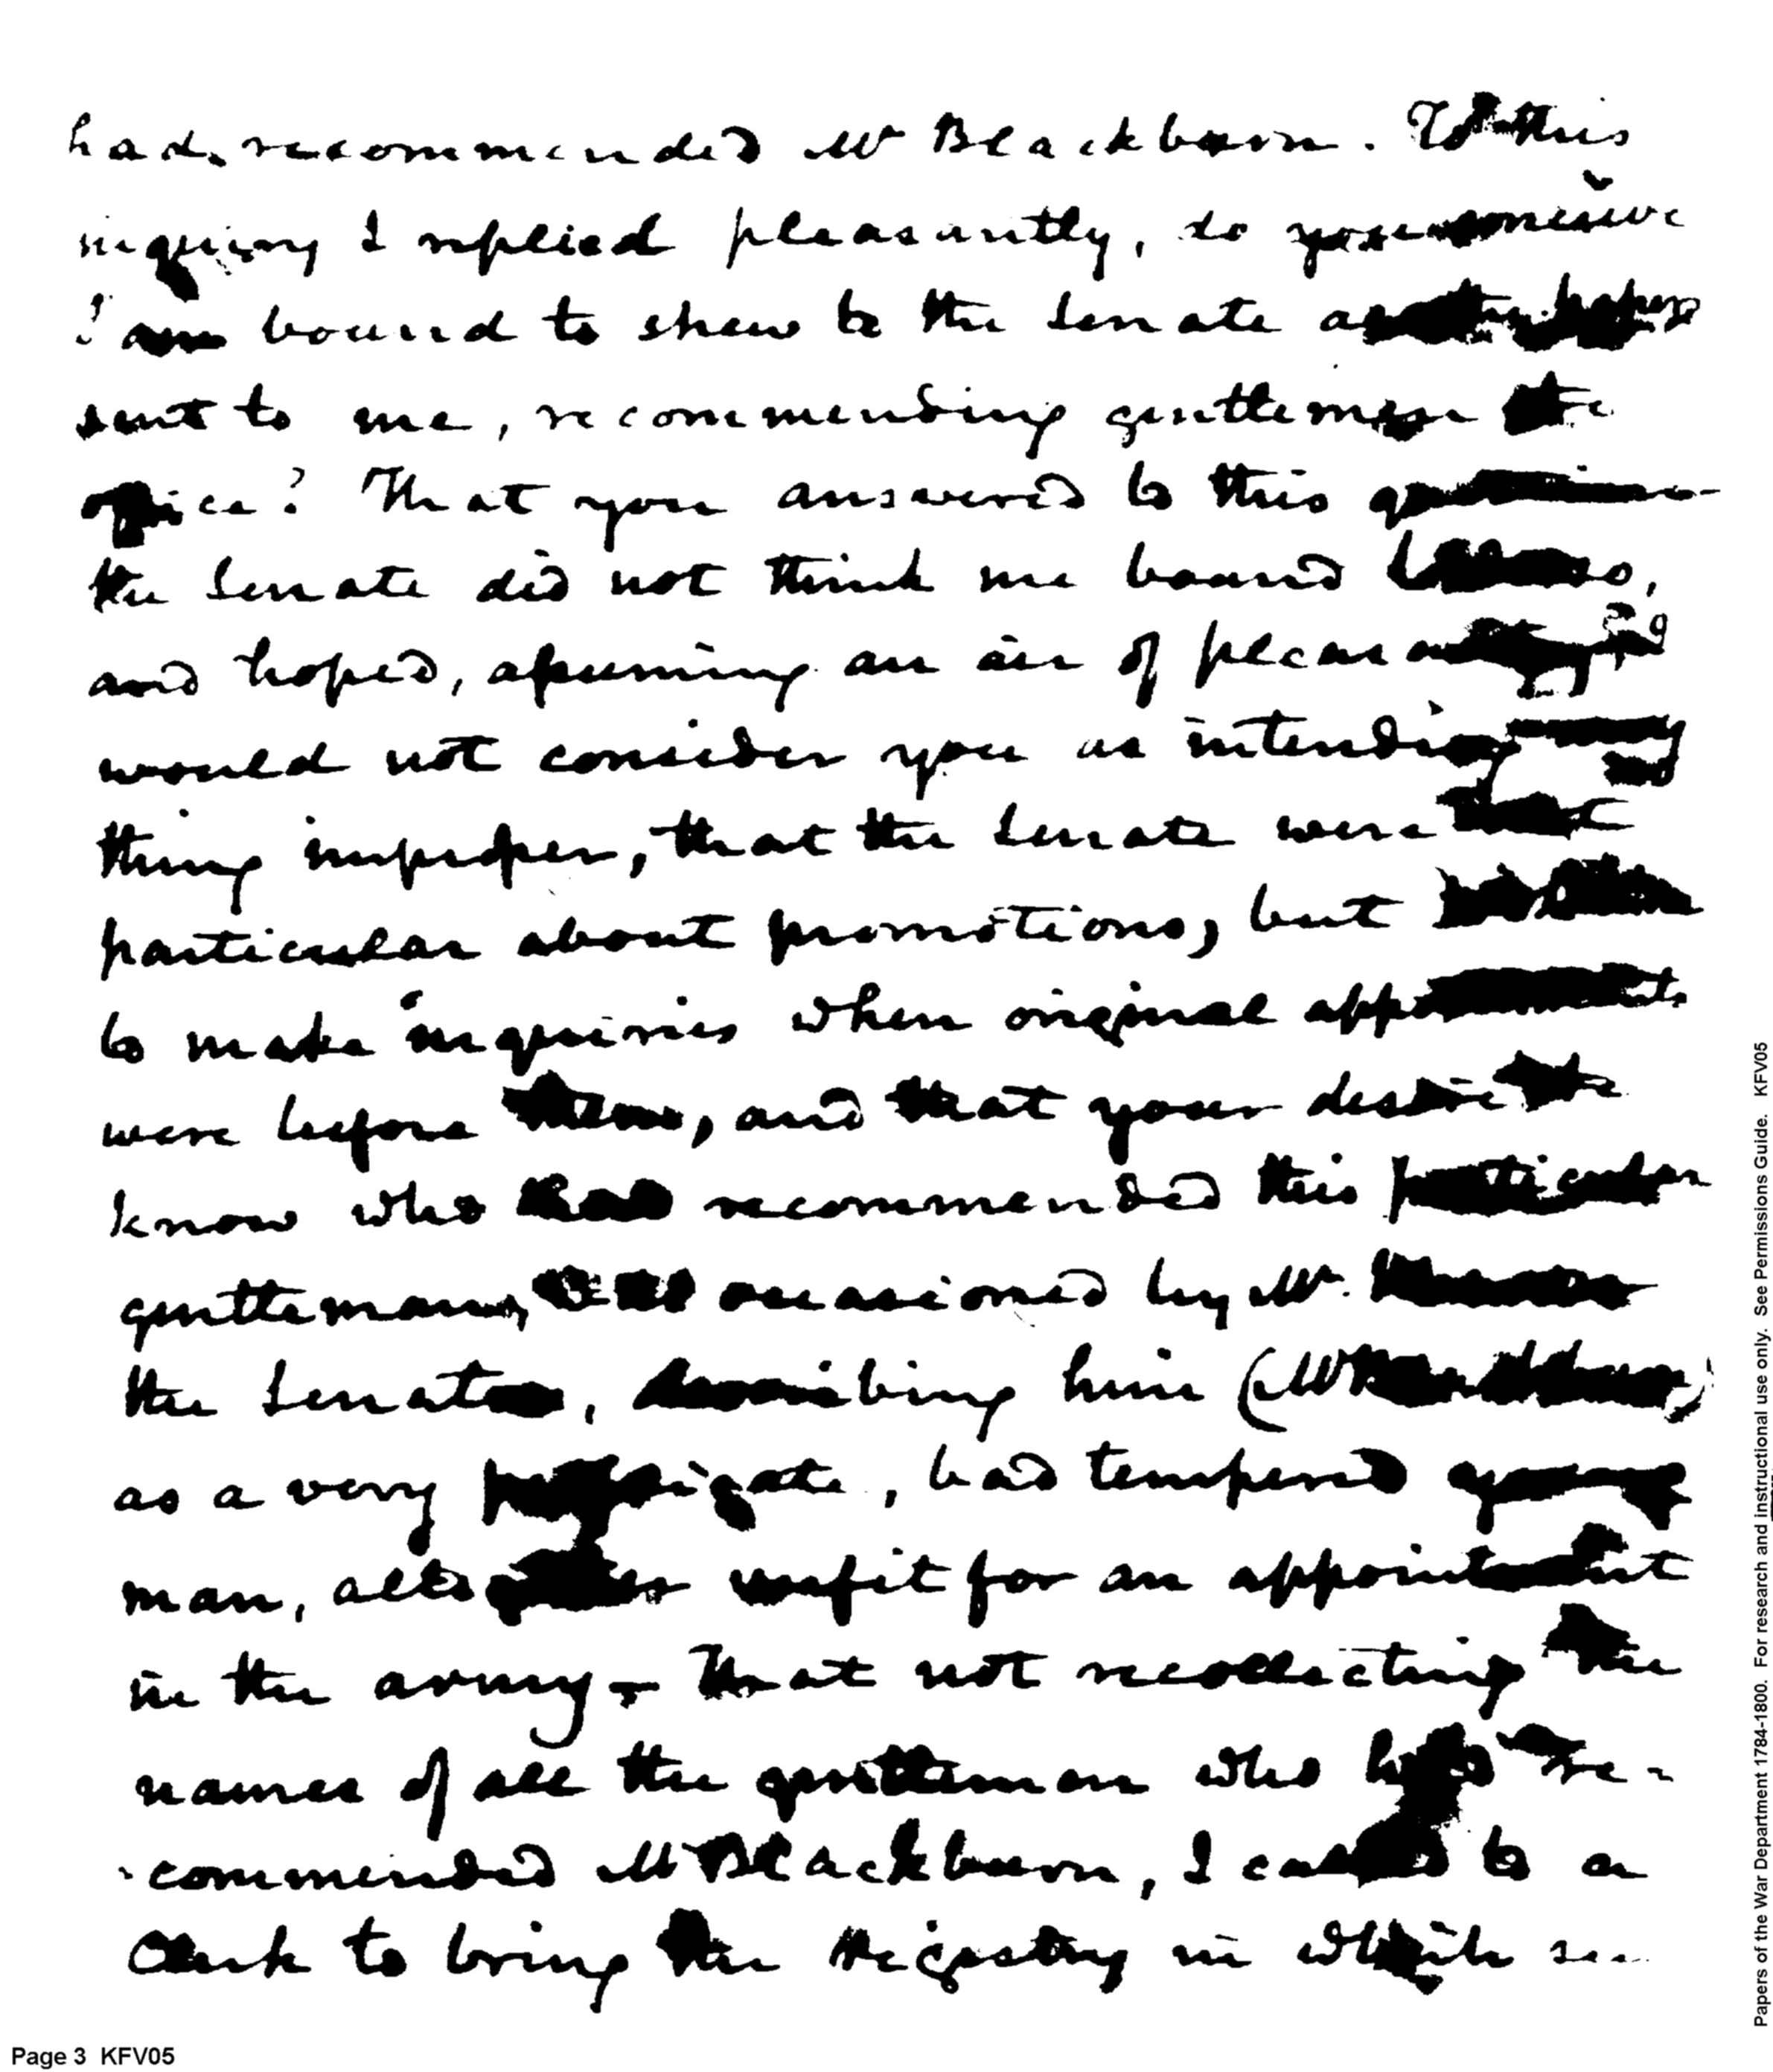 had recommended Mr Blackburn. To this
inquiry I replied pleasantly, do you conceive
I am bound to shew to the Senate all the papers
sent to me, recommending gentlemen to
office? That you answered to this question
the Senate did not think me bound to do so,
and hoped, assuming an air of pleasantry, I
would not consider you as intending any
thing improper, that the Senate were not
particular about promotions, but
to make inquiries when original appointments
were before them, and that your desire to
know who had recommended this particular
gentleman, was occasioned by Mr.
the Senator, describing him (Mr Blackburn)
as a very profligate, bad tempered young
man, altogether unfit for an appointment
in the army – That not recollecting the
names of all the gentlemen who had re-
commended Mr Blackburn, I called to a
Clerk to bring the registry in which
Papers of the War Department 1784-1800. For research and instructional use only. See Permissions Guide. KFV05
Page 3 KFV05